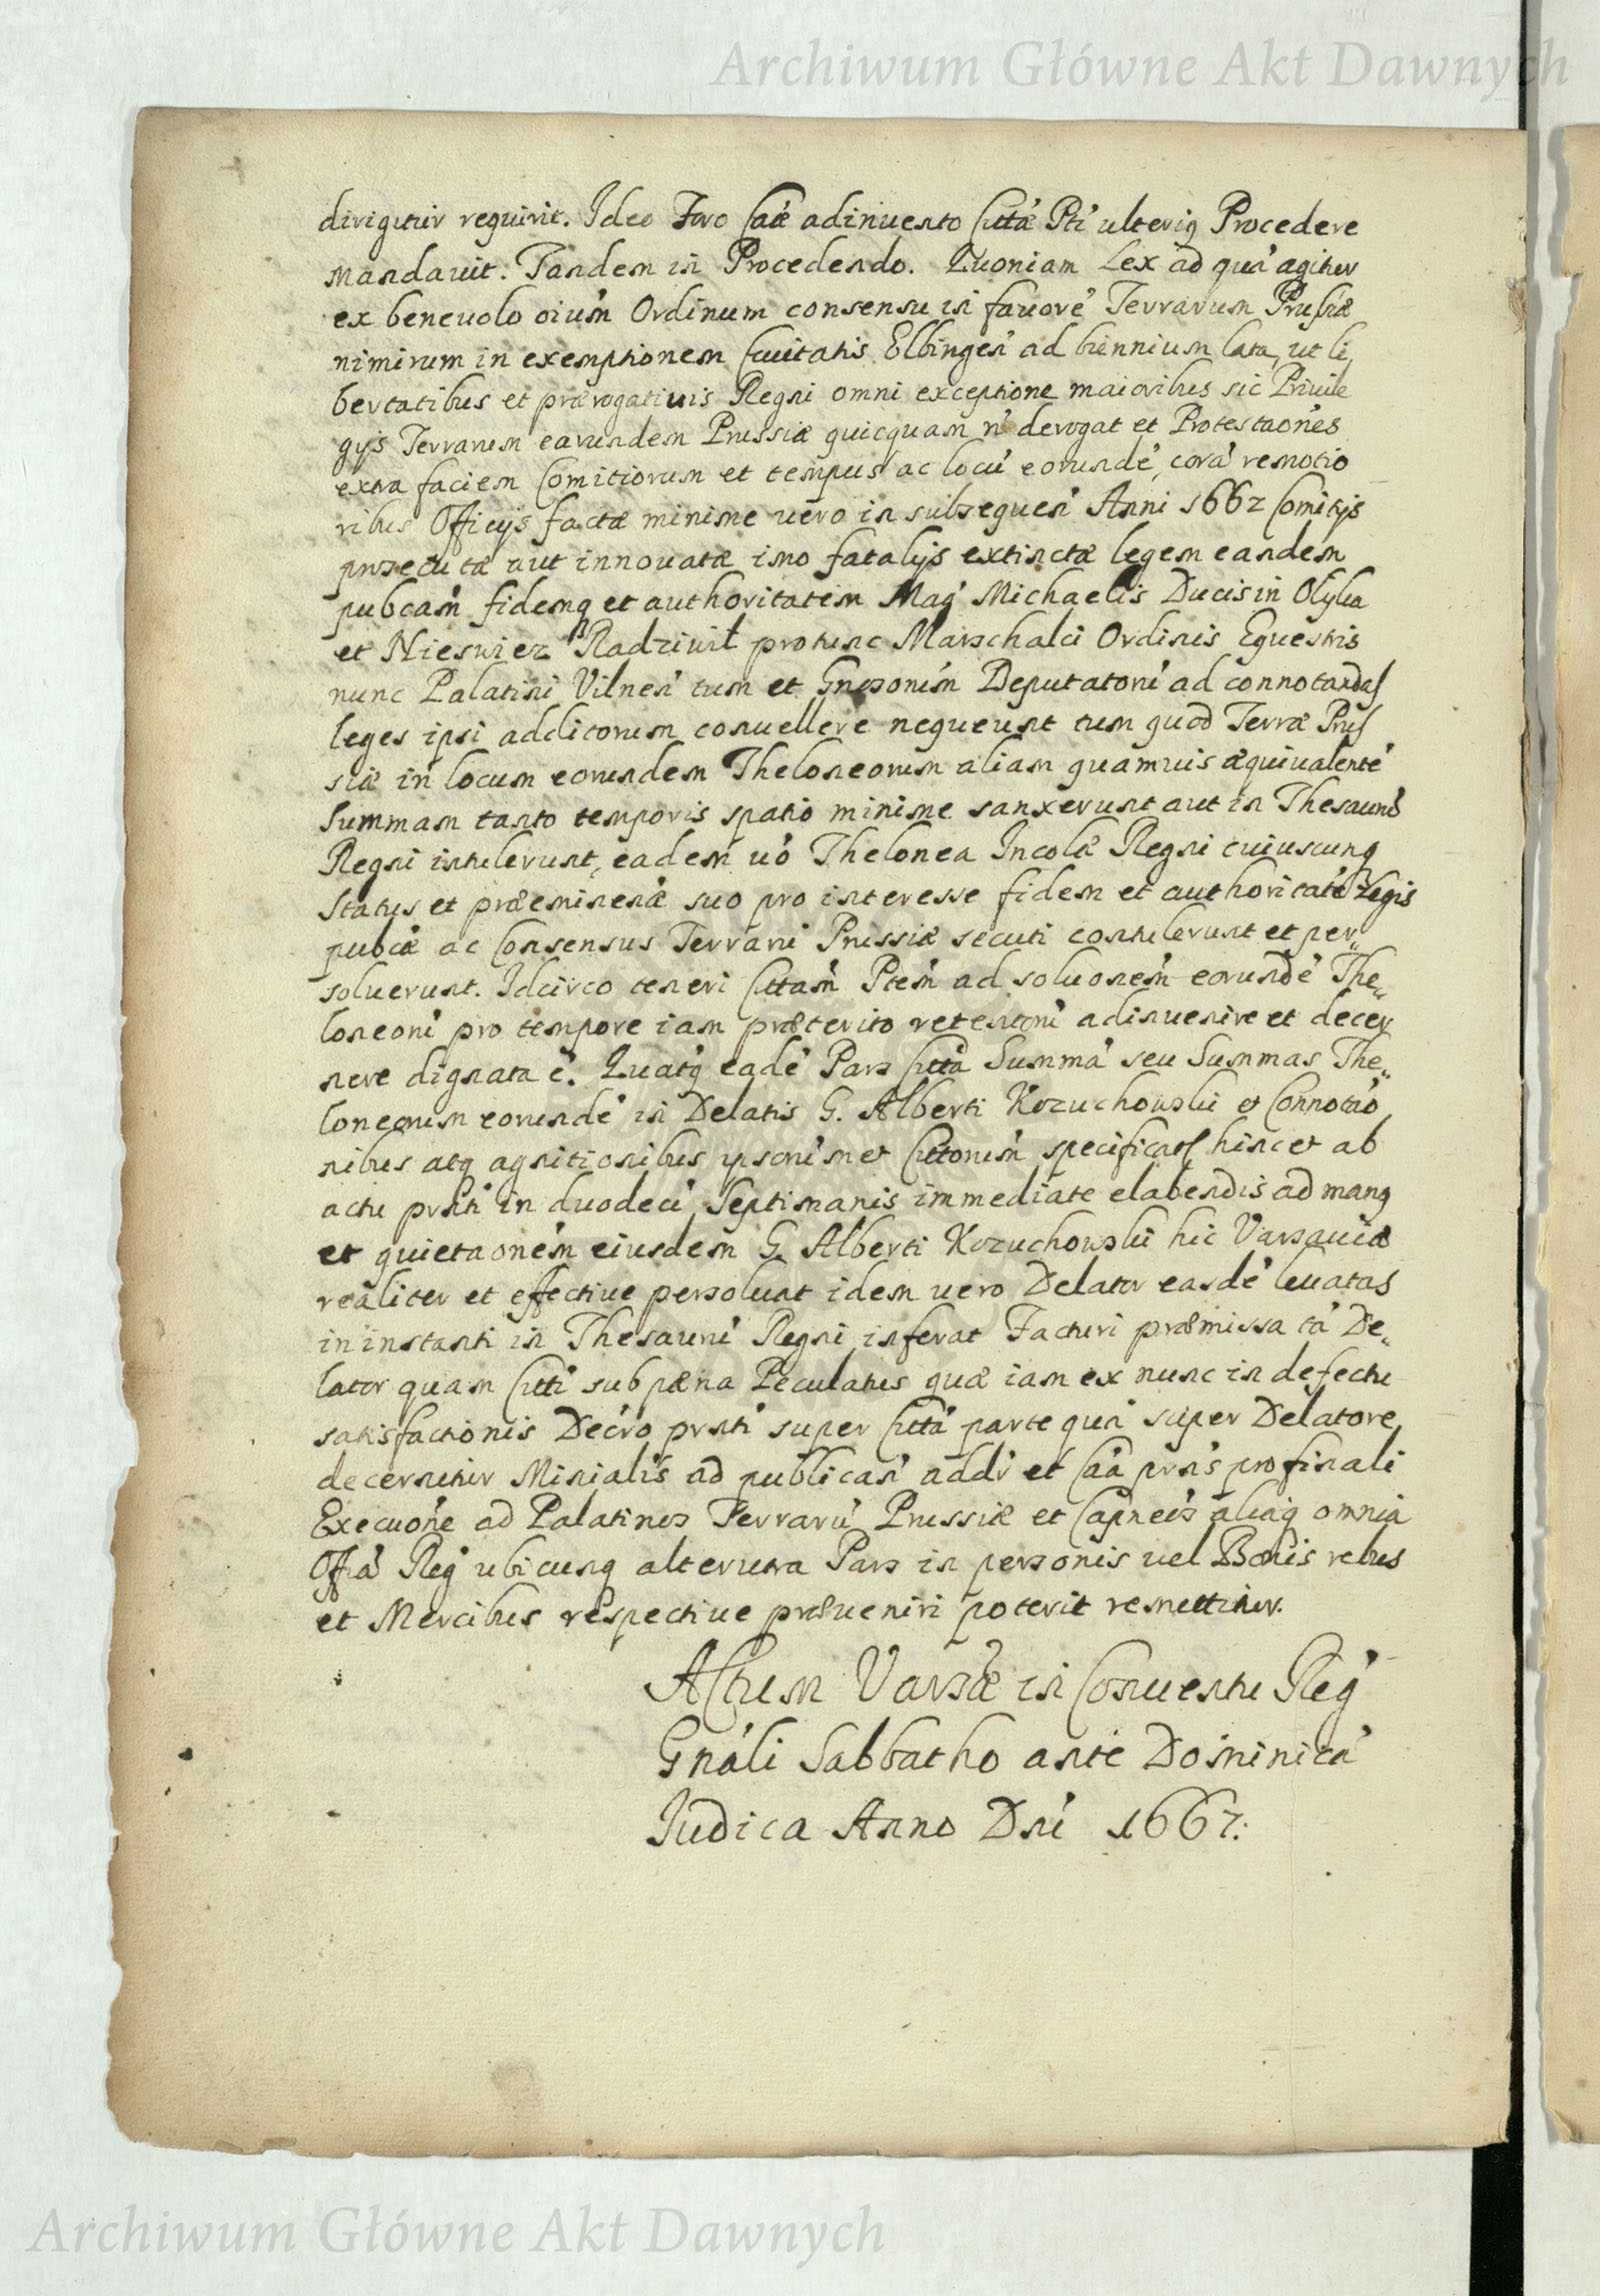 Archiwum Główne Akt Dawnych
dirigitur requirit. Ideo Foro Caæ adinuento Cittæ Pti ulterig Procedere
mandauit. Tandem in Procedendo. Quoniam Lex ad quá agitur
ex beneuolo oiúm Ordinum consensu in fauoré Terrarum Prussiæ
nimirum in exemptionem Ciuitatis Elbingeń ad biennium lata, ut li,
bertatibus et prærogatiuis Regni omni exceptione maioribus sic Priuile
gijs Terrarum earundem Prussiæ quicquam ń derogat et Protestaónes
extra faciem Comitiorum et tempus ac locú eorundé, corá remotio
ribus Officijs factæ minime uero in subsequeń Anni 1662 Comitijs
prosecutæ aut innouatæ imo fatalijs extinctæ legem eandem
pubcám fidemq et authoritatem Mag Michaelis Ducis in Olyka
et Nieswiez Radziwił protunc Marschalci Ordinis Equestris
nunc Palatini Vilneń tum et Gnrsorúm Deputatorú ad connotandas
leges ipsi additorum conuellere nequeunt tum quod Terræ Prus
siæ in locum eorundem Theloneorum aliam quamuis æquiualenté
Summam tanto temporis spatio minime sanxerunt aut in Thesaurú
Regni intulerunt, eadem uó Thelonea Incolæ Regni cuiuscunq
status et præeminenæ suo pro interesse fidem et authoritaté Legis
pubcæ ac Consensus Terrarú Prussiæ secuti contulerunt et per„
soluerunt. Idcirco teneri Cittám Ptem ad soluonem eorundé The„
loneorú pro tempore iam præterito retentorú adinuenire et decer
nere dignata é. Quatq eadé Pars Citta Summá seu Summas The„
loneorum eorundé in Delatis G. Alberti Kozuchowski et Connotáo,
nibus atq agnitionibus ipsorúmet Cittorum specificats hinc et ab
actu prnti in duodecí Septimanis immediate elabendis ad manq
et quietaoném eiusdem G. Alberti Kozuchowski hic Varsauiæ
realiter et effectiue persoluat idem uero Delator easdé leuatas
in instanti in Thesaurú Regni inferat Facturi præmissa tá De„
lator quam Citti sub pæna Peculatus quæ iam ex nunc in defectu
satisfactionis Decro prnti super Cittá parte quá super Delatore,
decernitur Minialis ad publicań addi et Caa prns pro finali
Execuóne ad Palatinos Terrarú Prussiæ et Capneós aliaq omnia
Offia Reg ubicunq alterutra Pars in personis uel Bonis rebus
et Mercibus respectiue præueniri poterit remittitur.
Actum Varsæ in Conuentu Reg
Gnáli Sabbatho ante Dominicá
Iudica Anno Dni 1667.
Archiwum Główne Akt Dawnych